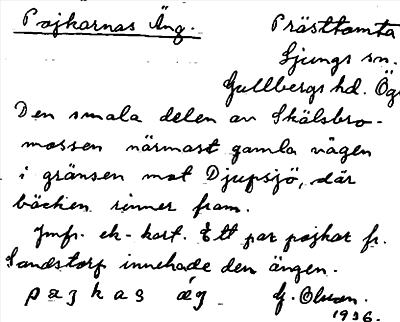 Pojkarnas Äng. Prästtomta
Ljungs sn.
Gullbergs hd. Ög
Den smala delen av Skälsbro-
mossen närmast gamla vägen
i gränsen mot Djupsjö, där
bäcken rinner fram.
Jmfr. ek-kort. Ett par pojkar fr.
Sandstorp innehade den ängen.
G. Olsson.
1936.